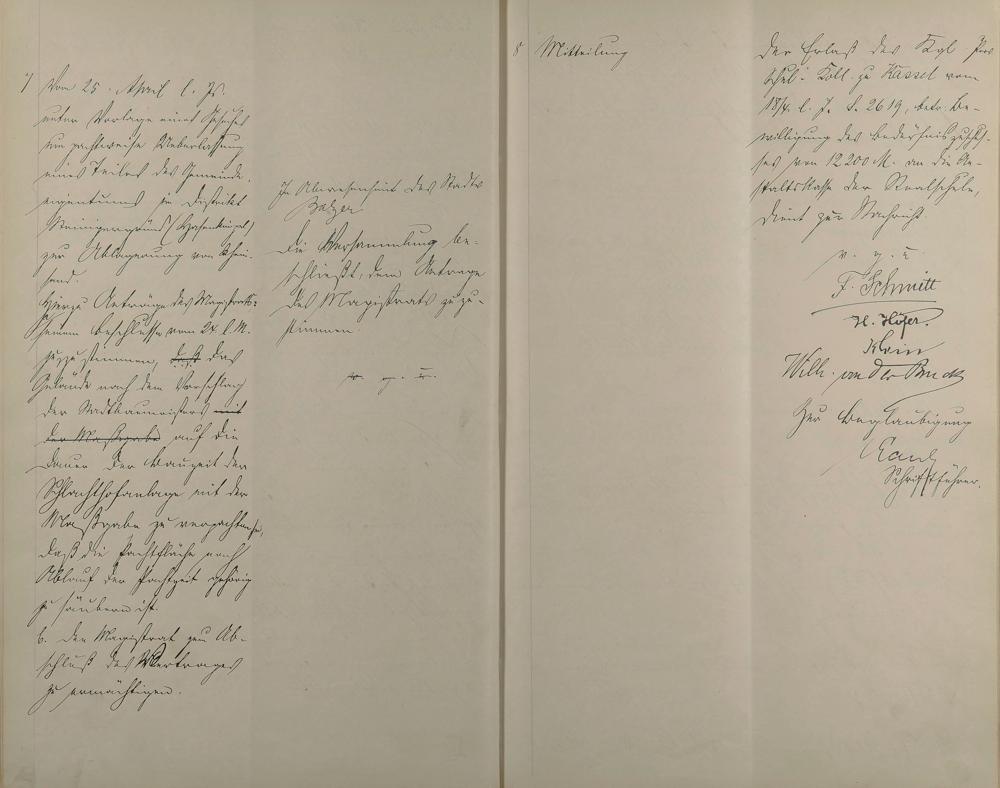 7
Vom 25. April l. Js.
unter Vorlage eines Gesuches
um pachtweise Ueberlassung
eines Teiles des Gemeinde-
eigentums im Distrikt
(Hasenküppel)
zur Ablagerung von Rhein-
sand.
Hierzu Anträge des Magistrats:
seinem Beschlusse vom 24. l. M.
zuzustimmen, daß das
Gelände nach dem Vorschlag
der Stadtbaumeisters mit
der Maßgabe auf die
Dauer der Bauzeit der
Schlachthofanlage mit der
Maßgabe zu verpachten,
daß die Pachtfläche nach
Ablauf der Pachtzeit gehörig
zu säubern ist.
b. den Magistrat zum Ab-
schluß des Vertrages
zu ermächtigen.
In Abwesenheit des Stadtv
Balzer
Die Versammlung be-
schließt, dem Antrage
des Magistrats zuzu-
stimmen.
v. g. u.
8 Mitteilung
Der Erlaß des Kgl Prov
Schul-Koll. zu Kassel vom
18/4. l. J. S. 2619, betr. Be-
willigung des Bedürfniszuschus-
ses von 12200 M. an die An-
staltskasse der Realschule,
dient zur Nachricht.
v. g. u.
F. Schmitt
H. Höfer.
Klein
Wilh. von der Bruck
Zur Beglaubigung
Schriftführer.